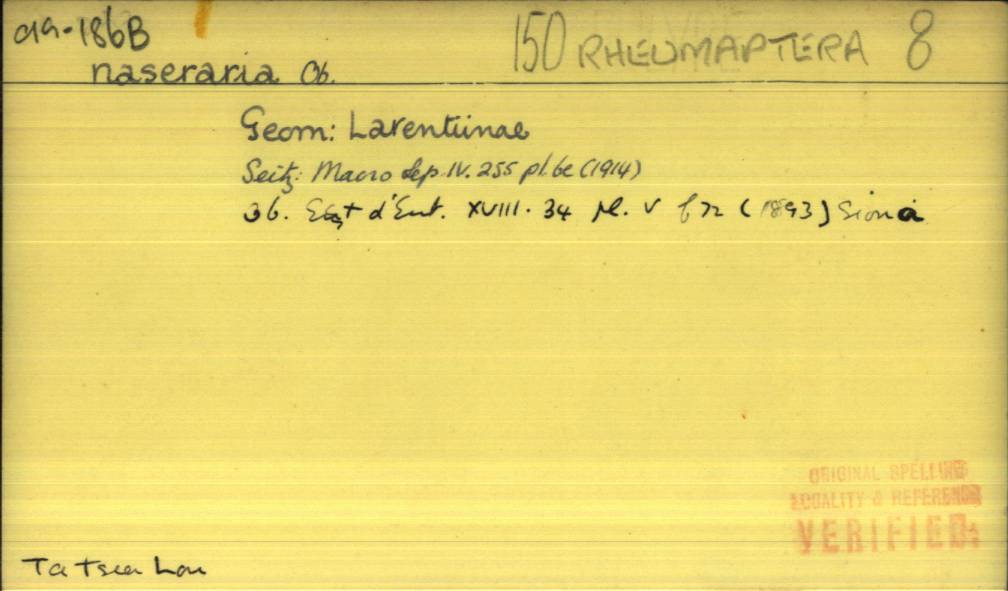 919-186B
150 RHEUMAPTERA 8
naseraria Ob.
Geom: Larentiinae
Seitz: Macro Lep. IV. 255 pl. 6e (1914)
Ob. d'Ent. XVIII. 34 Pl. V f 72 (1893) Siona
ORIGINAL SPELLING
LOCALITY & REFERENCE
VERIFIED:
Ta tsien Lou